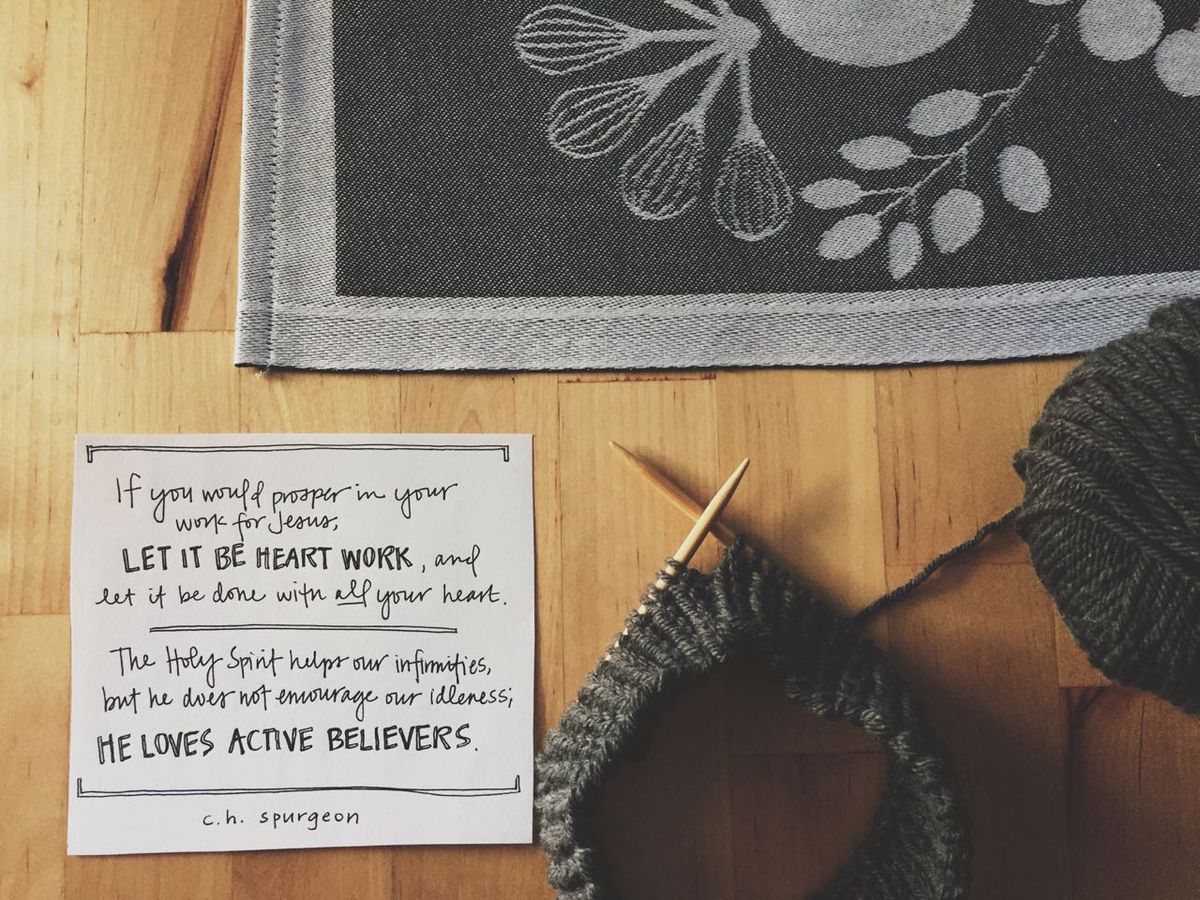 If you would prosper in your
work for Jesus,
LET IT BE HEART WORK, and
let it be done with all your heart.
The Holy Spirit helps our infirmities,
but he does not encourage our idleness;
HE LOVES ACTIVE BELIEVERS.
c.h. spurgeon